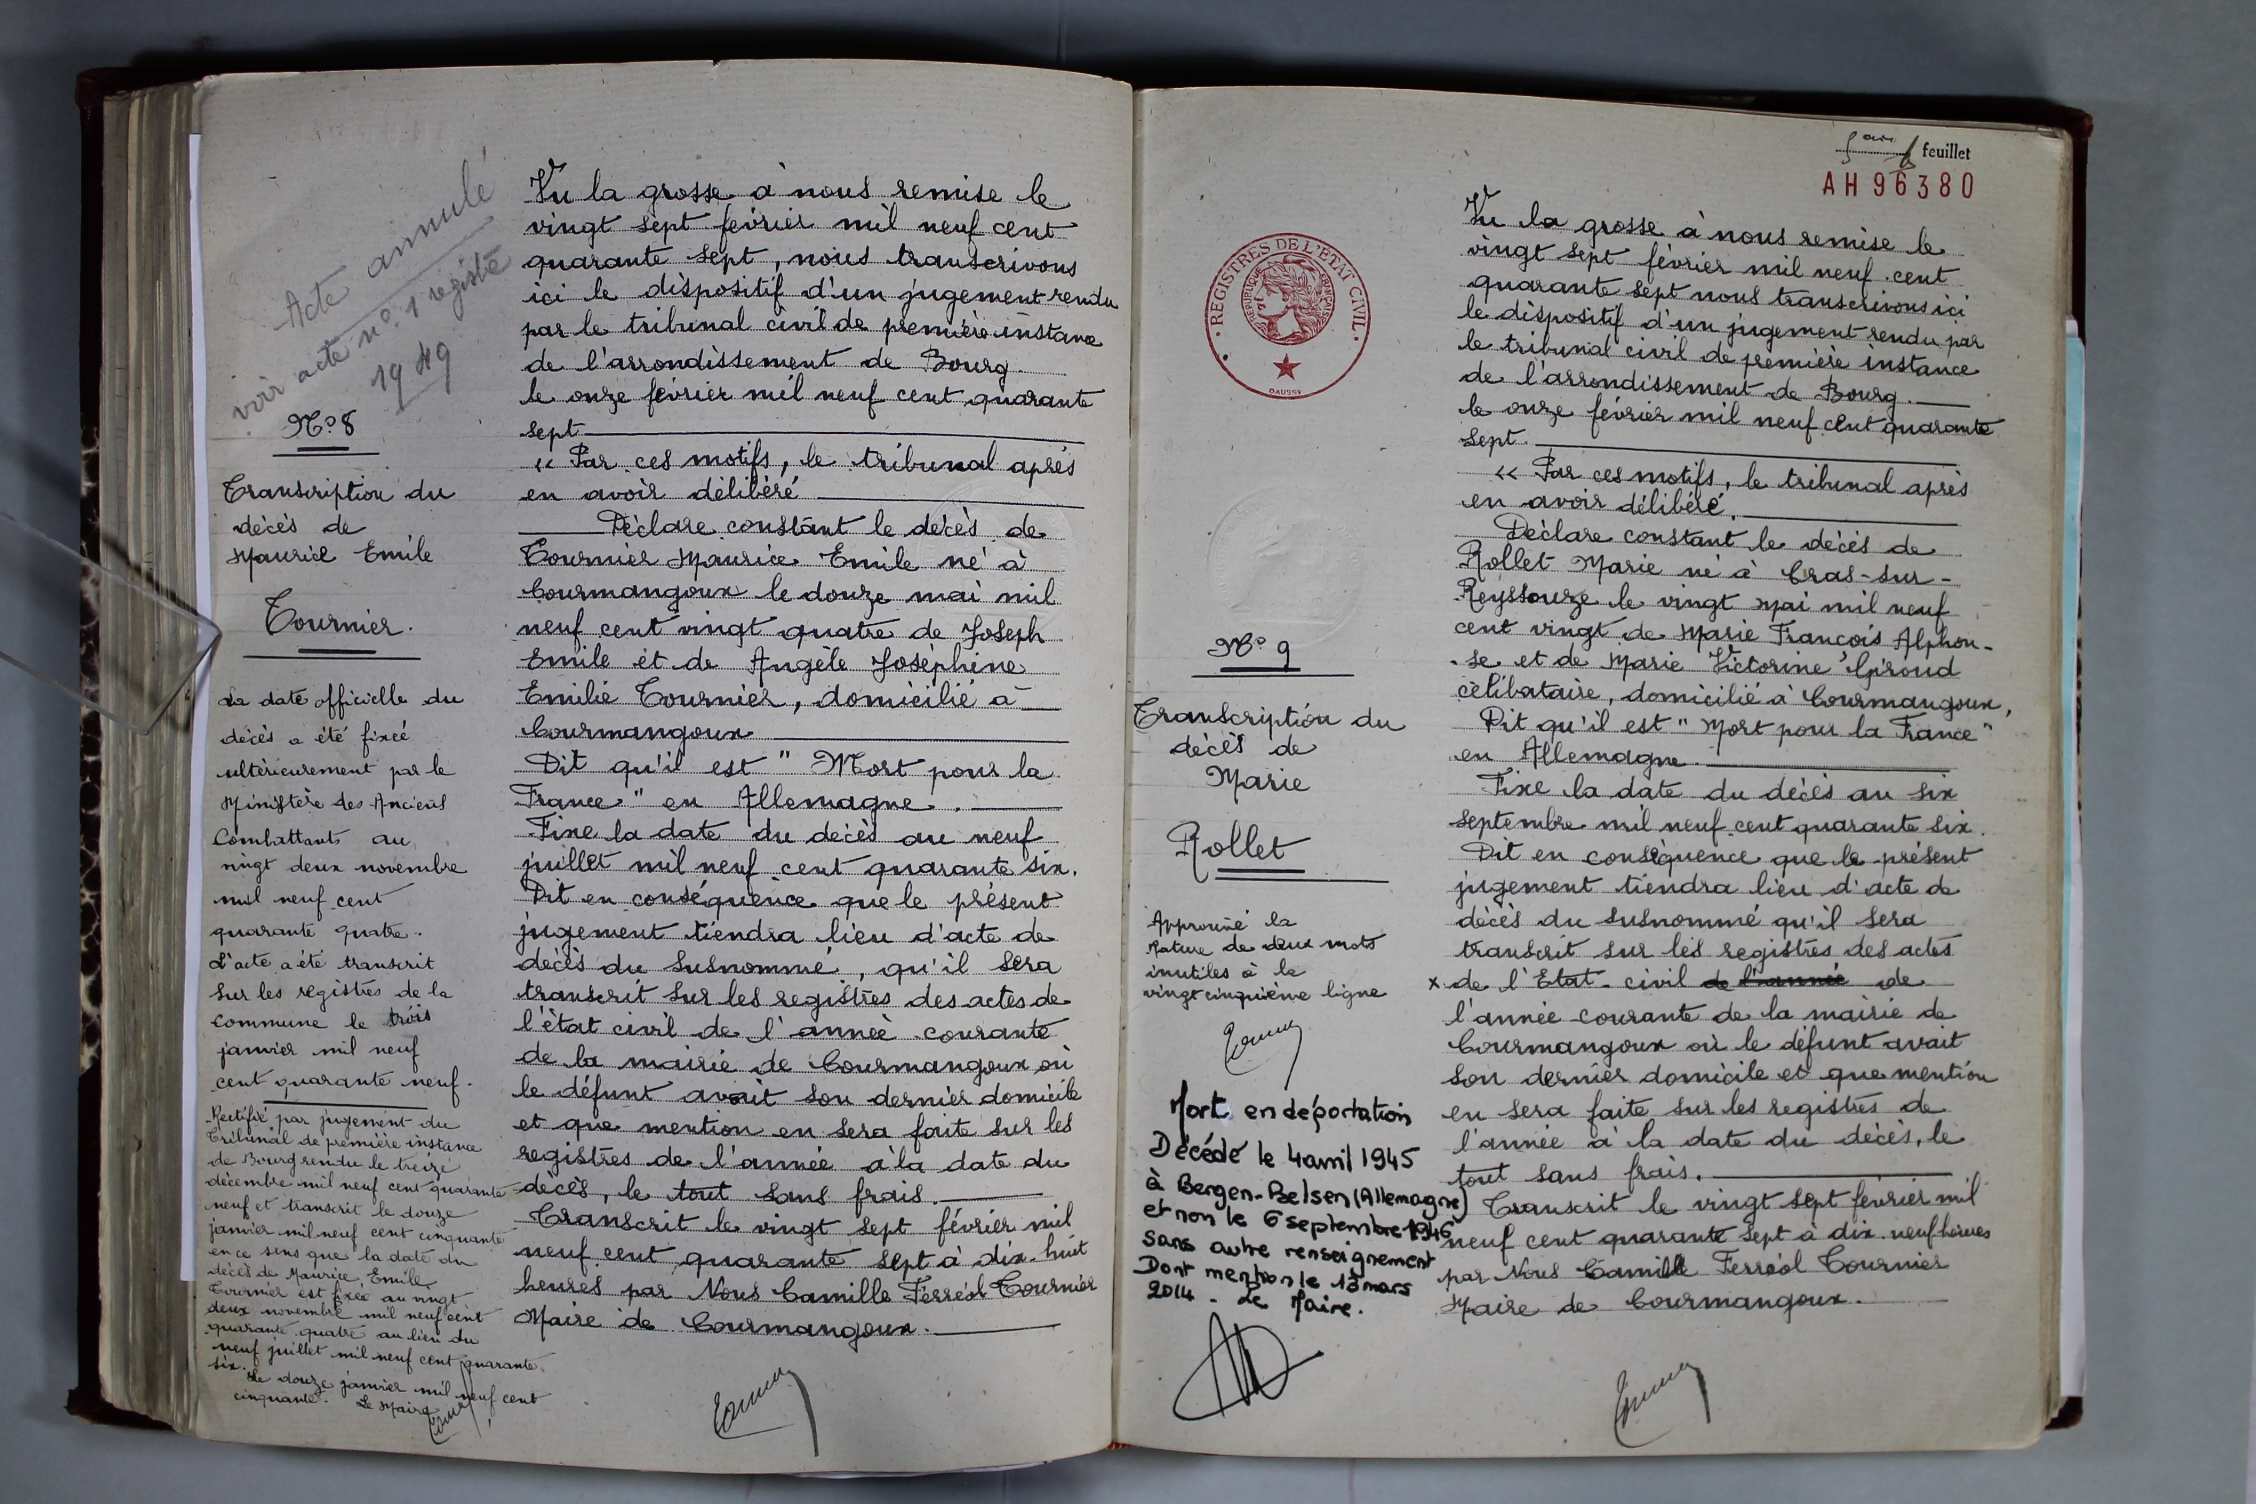 Acte annulé
voir acte nº 1 registre
1949
Nº 8
Transcription du
décès de
Maurice Emile
Tournier.
La date officielle du
décès a été fixée
ultérieurement par le
Ministère des Anciens
Combattants au
vingt deux novembre
mil neuf cent
quarante quatre.
L'acte a été transcrit
sur les registres de la
commune le trois
janvier mil neuf
cent quarante neuf.
Rectifié par jugement du
Tribunal de première instance
de Bourg rendu le treize
décembre mil neuf cent quarante
neuf et transcrit le douze
janvier mil neuf cent cinquante
en ce sens que la date du
décès de Maurice, Emile
Tournier est fixée au vingt
deux novembre mil neuf cent
quarante quatre au lieu du
neuf juillet mil neuf cent quarante
six.
Le douze janvier mil neuf cent
cinquante. Le Maire
Vu la grosse à nous remise le
vingt sept février mil neuf cent
quarante sept, nous transcrivons
ici le dispositif d'un jugement rendu
par le tribunal civil de première instance
de l'arrondissement de Bourg.
le onze février mil neuf cent quarante
sept
« Par ces motifs, le tribunal après
en avoir délibéré
Déclare constant le décès de
Tournier Maurice Emile né à
Courmangoux le douze mai mil
neuf cent vingt quatre de Joseph
Emile et de Angèle Joséphine
Emilie Tournier, domicilié à
Courmangoux
Dit qu'il est "Mort pour la
France" en Allemagne.
Fixe la date du décès au neuf
juillet mil neuf cent quarante six.
Dit en conséquence que le présent
jugement tiendra lieu d'acte de
décès du susnommé, qu'il sera
transcrit sur les registres des actes de
l'état civil de l'année courante
de la mairie de Courmangoux où
le défunt avait son dernier domicile
et que mention en sera faite sur les
registres de l'année à la date du
décès, le tout sans frais.
Transcrit le vingt sept février mil
neuf cent quarante sept à dix-huit
heures par Nous Camille Ferréol Tournier
Maire de Courmangoux.
feuillet
AH 96380
REGISTRES DE L'ETAT CIVIL
REPUBLIQUE FRANCAISE
DAUSSY
Nº 9
Transcription du
décès de
Marie
Rollet
Approuvé la
rature de deux mots
inutiles à la
vingt cinquième ligne
Mort en déportation
Décédé le 4 avril 1945
à Bergen-Belsen (Allemagne)
et non le 6 septembre 1946
sans autre renseignement
Dont mention le 13 mars
2014. Le Maire.
Vu la grosse à nous remise le
vingt sept février mil neuf cent
quarante sept nous transcrivons ici
le dispositif d'un jugement rendu par
le tribunal civil de première instance
de l'arrondissement de Bourg.
le onze février mil neuf cent quarante
sept.
« Par ces motifs, le tribunal après
en avoir délibéré.
Déclare constant le décès de
Rollet Marie né à Cras-sur-
Reyssouze le vingt mai mil neuf
cent vingt de Marie François Alphon-
-se et de Marie Victorine Giroud
célibataire, domicilié à Courmangoux,
Dit qu'il est "Mort pour la France"
en Allemagne.
Fixe la date du décès au six
septembre mil neuf cent quarante six.
Dit en conséquence que le présent
jugement tiendra lieu d'acte de
décès du susnommé qu'il sera
transcrit sur les registres des actes
x de l'Etat-civil de l'année de
l'année courante de la mairie de
Courmangoux où le défunt avait
son dernier domicile et que mention
en sera faite sur les registres de
l'année à la date du décès, le
tout sans frais.
Transcrit le vingt sept février mil
neuf cent quarante sept à dix-neuf heures
par Nous Camille Ferréol Tournier
Maire de Courmangoux.